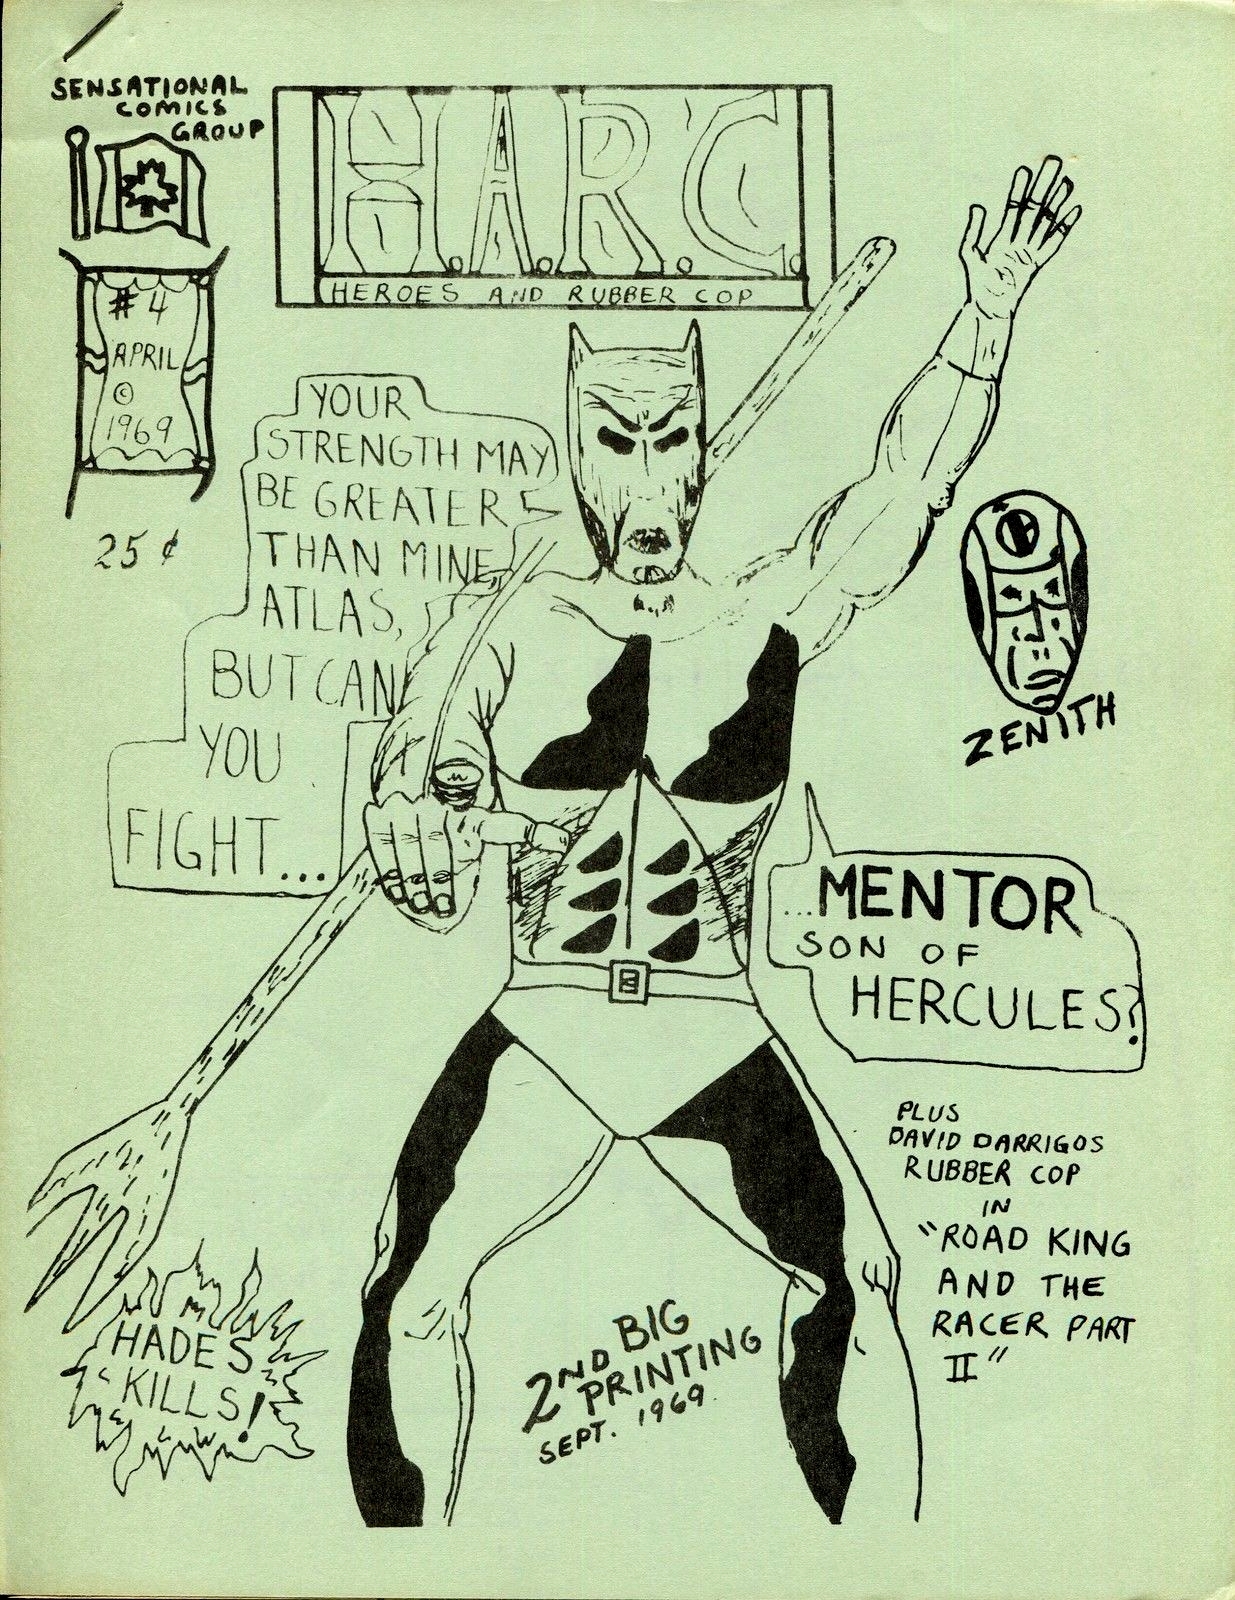 SENSATIONAL
COMICS
GROUP
H.A.R.C.
HEROES AND RUBBER COP
#4
APRIL
©
1969
25 ¢
YOUR
STRENGTH MAY
BE GREATER
THAN MINE,
ATLAS,
BUT CAN
YOU
FIGHT...
ZENITH
...MENTOR
SON OF
HERCULES?
PLUS
DAVID DARRIGOS
RUBBER COP
IN
"ROAD KING
AND THE
RACER PART
II"
HADES
KILLS!
2ND BIG
PRINTING
SEPT. 1969